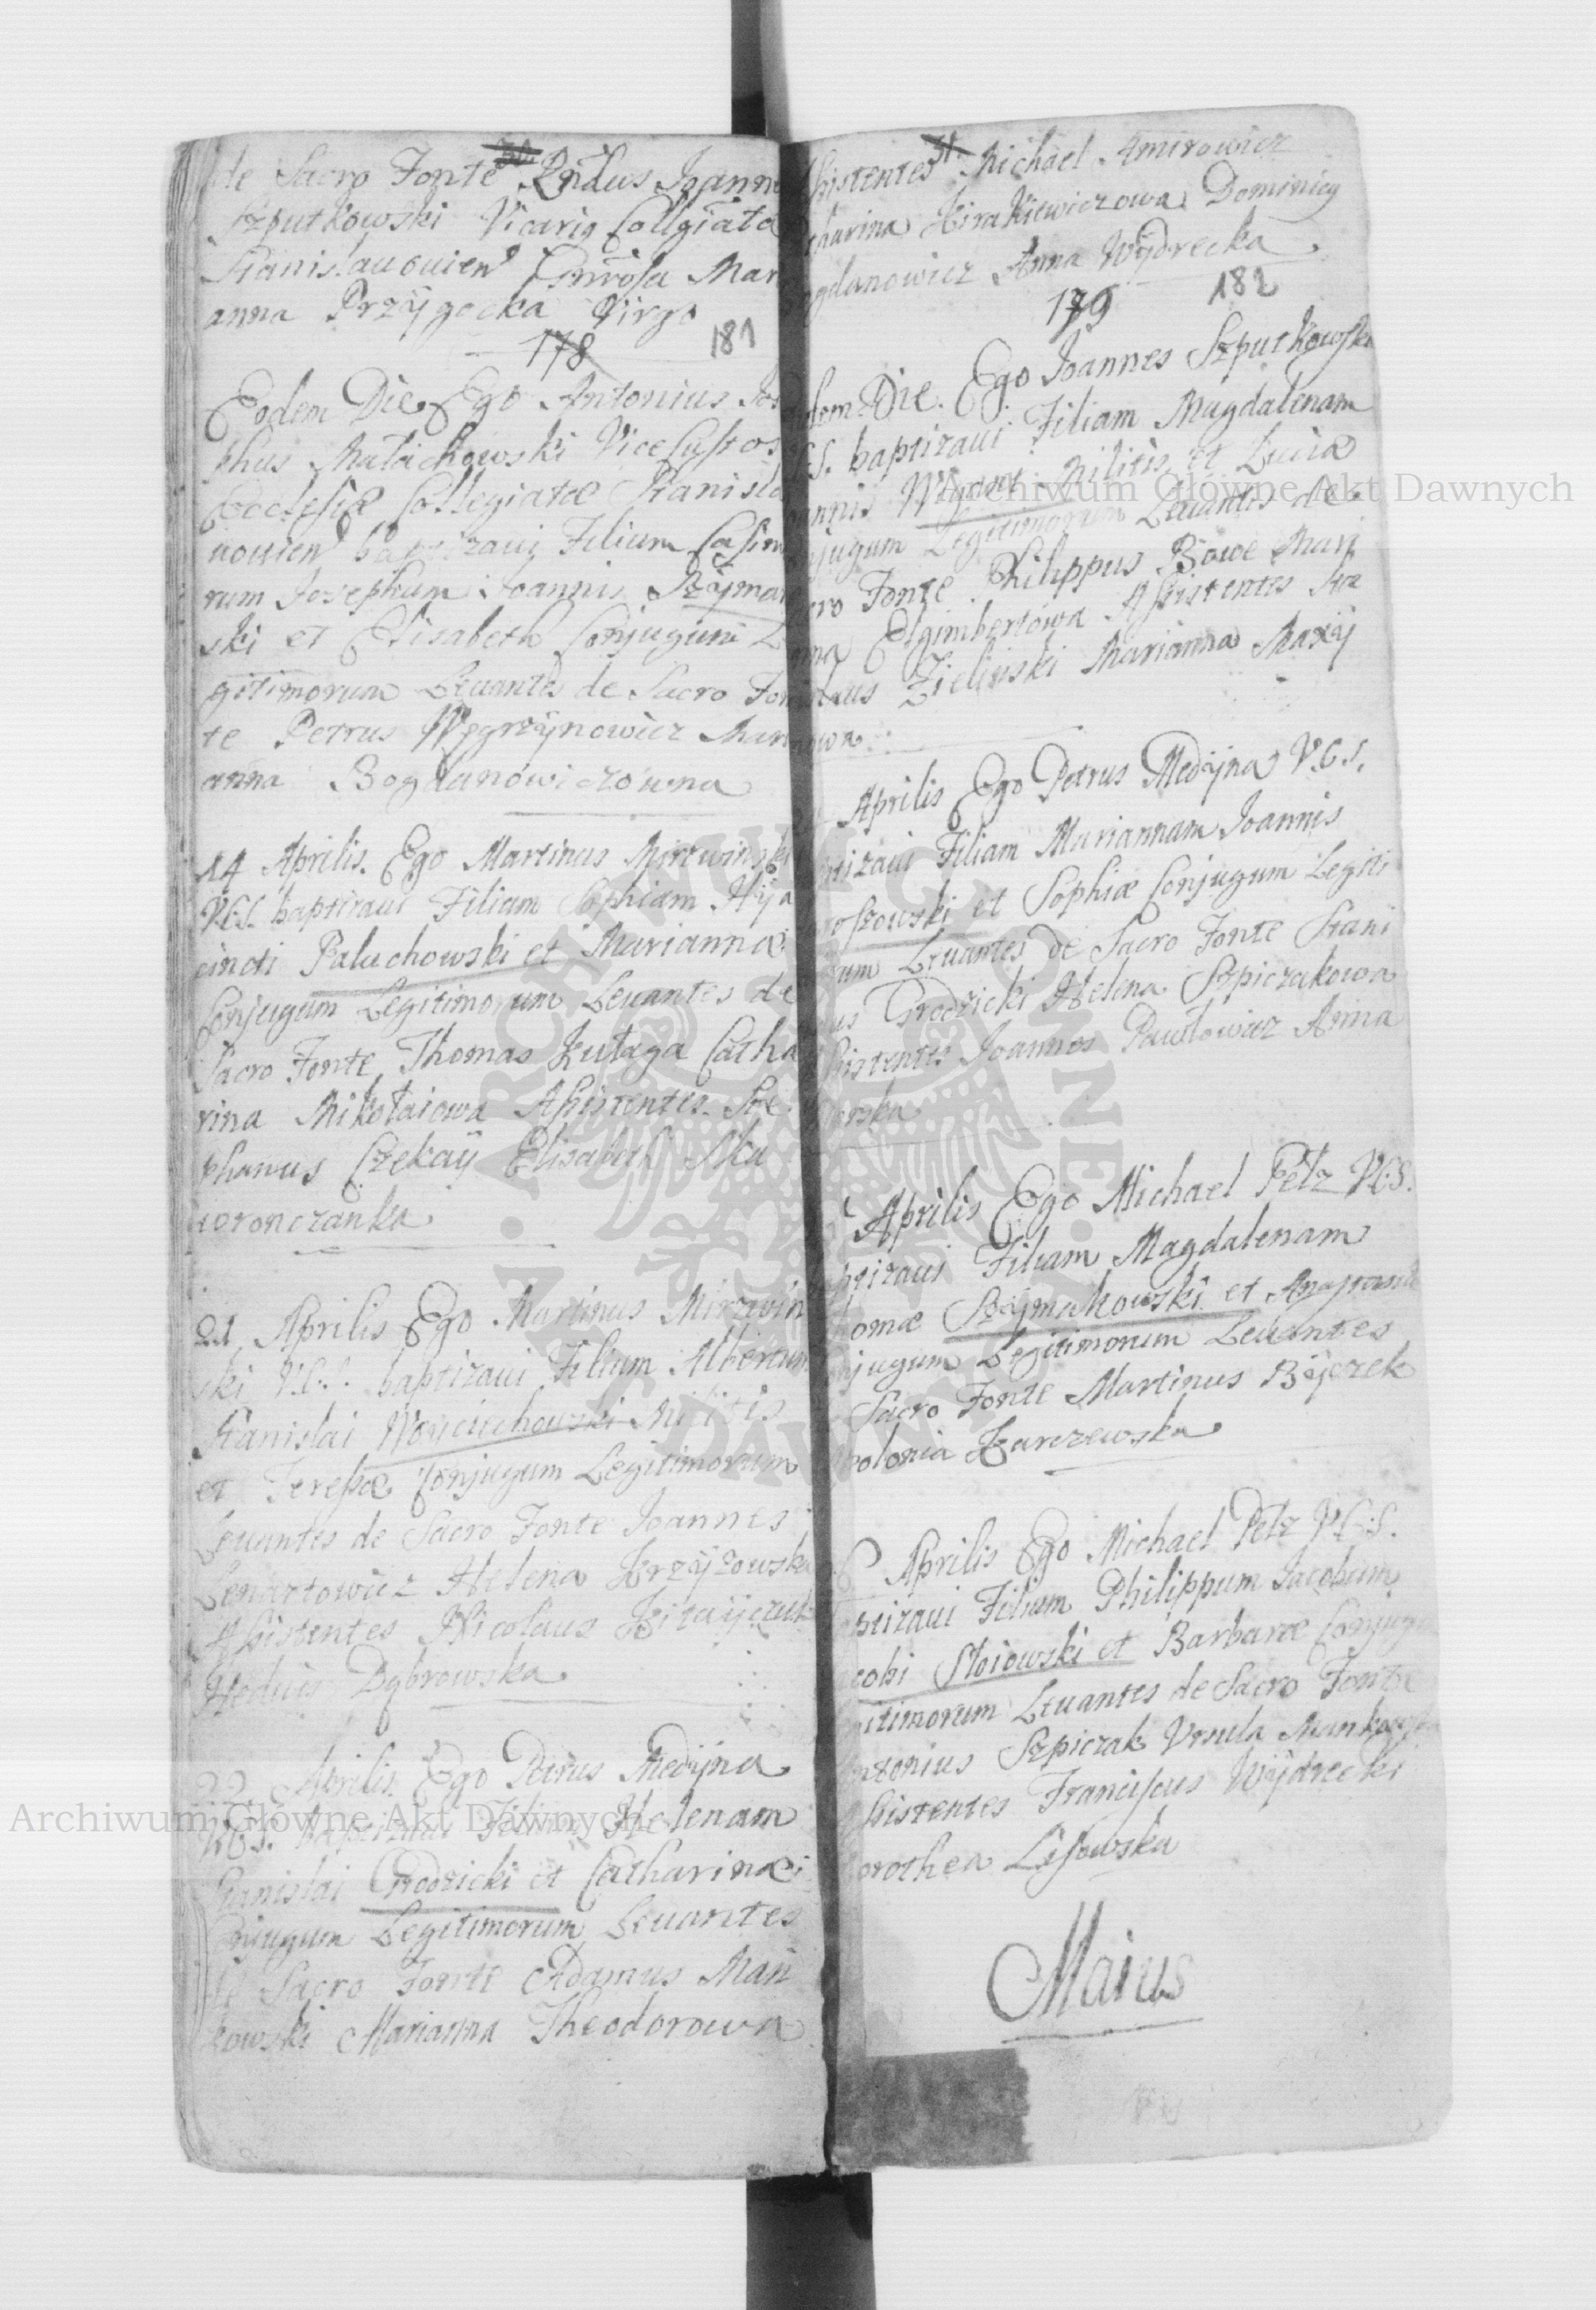 30
de Sacro Fonte Rndus Joann
Szputkowski Vicarig Collgiatæ
Stanislauouien Gnrosa Mar
anna Przÿgocka Virgo
178 181
Eodem Die Ego Antonius Jos
phus Małachowski Vice Custos
Ecclesiæ Collegiatæ Stanisla
uouien baptizaui Filium Casim
rum Josephum Joannis Szÿmań
ski et Elisabeth Conjugum Le
gitimorum Leuantes de Sacro Fon
te Petrus Węgrzÿnowicz Mari
anna Bogdanowiczowna
14 Aprilis. Ego Martinus Mirzwinski
V.C.S. baptizaui Filiam Sophiam Hÿa
cinti Paluchowski et Mariannæ
Conjugum Legitimorum Leuantes de
Sacro Fonte Thomas Kutaga Catha
rina Mikołaiowa Assistentes Ste
phanus Czekaÿ Elisabeth Ska
woronczanka
21 Aprilis Ego Martinus Mirzwin
ski V.C.S. baptizaui Filium Albertum
Stanislai Woyciechowski Militis
et Teressæ Conjugum Legitimorum
Leuantes de Sacro Fonte Joannes
Lenartowicz Helena Krzÿżowska
Assistentes Nicolaus
Heduis Dąbrowska
22 Aprilis Ego Petrus Medÿna
V.C.S. baptizaui Filiam Helenam
Stanislai Grodzicki et Catharinæ
Conjugum Legitimorum Leuantes
de Sacro Fonte Adamus Mań
kowski Marianna Theodorowa
31
ssistentes Michael Amirowicz
tharina Kirakiewiczowa Dominicg
ogdanowicz Anna Wÿdrecka
179 182
odem Die Ego Joannes Szputkowski
C.S. baptizaui Filiam Magdalenam
oannis Wigant Militis et Luciæ
njugum Legitimorum Leuantes de
cro Fonte Philippus Bowe Mari
nna Elgimbertowa Assistentes Sta
islaus Zieliński Marianna Maxÿ
owa
Aprilis Ego Petrus Medÿna V.C.S.
ptizaui Filiam Mariannam Joannis
roszowski et Sophiæ Conjugum Legiti
rum Leuantes de Sacro Fonte Stani
us Grodzicki Helena Szpiczakowa
ssistentes Joannes Pawłowicz Anna
orska
Aprilis Ego Michael Pełz V.C.S.
aptizaui Filiam Magdalenam
homæ Szÿmakowski et Anastasiæ
njugum Legitimorum Leuantes
Sacro Fonte Martinus Bÿczek
polonia Karczewska
6 Aprilis Ego Michael Pełz V.C.S.
ptizaui Filium Philippum Jacobum
acobi Słoiowski et Barbaræ Conjugu
gitimorum Leuantes de Sacro Fonte
ntonius Szpiczak Vrsula Mankowska
ssistentes Franciscus Wÿdrecki
orothea Lisowska
Maius
Archiwum Główne Akt Dawnych
Archiwum Główne Akt Dawnych
ARCHIWUM GŁÓWNE AKT DAWNYCH